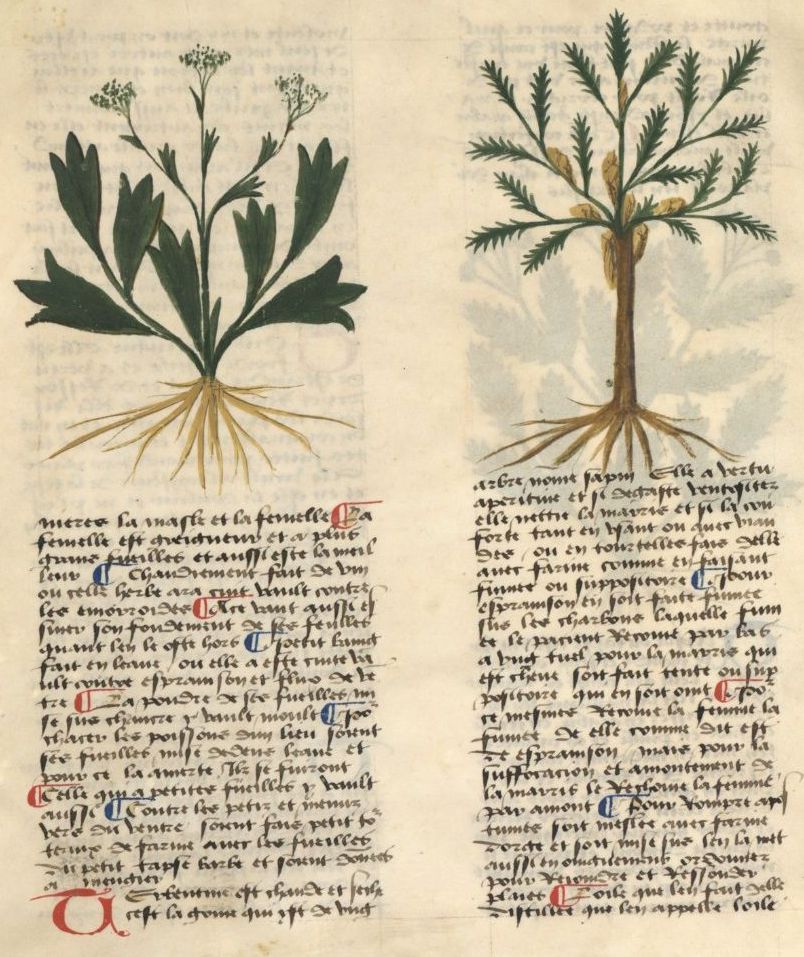 nieres la masle et la femelle ¶ La
femelle est greigneur et a plus
grans fueilles et aussi este la meil
leur ¶ Chaudement fait de vin
ou celle herbe ara cuit vault contre
les emorroides ¶ Ace vault aussi es
suier son fondement de ses feulles
quant len le oste hors ¶ petit baing
fait en leaue ou elle a este cuite va
ult contre espraimson et fluo de ve
tre ¶ La poudre de ses fueilles mi
se sus chancre y vault moult ¶ Poo
chacer les poissons dun lieu soient
ses fueilles mise dedens leaue et
pour ce la amerte Ilz se fuiront
¶ Celle qui a petites fueilles y vault
aussi ¶ Contre les petiz et menuz
vers du ventre soient fais petit to
teaux de farine avec les fueilles
du petit tapse barbe et soient donees
a mengier
Terbentine est chaude et seiche
cest la gome qui yst de ung
arbre nome sapin Elle a vertu
aperitiue et si degaste ventositez
elle nettie la marris et si la con
forte tant en usant ou avec vian
des ou en tourtelles fais delle
avec farine comme en faisant
fumee ou suppositoire ¶ Pour
espraimson en soit faite fumee
sus les charbons laquelle fum
ee le pacient Recoiue par bas
a ung tuel pour la marris qui
est cheue soit fait tente ou sup
positoire qui en soit oint ¶ Poo
ce mesmes Recoiue la femme la
fumee de elle comme dit est
de espraimson mais pour la
suffocacion et amontement de
la marris le Rechoiue la femme
par amont ¶ Pour Rompre apos
tumes soit meslee avec farine
dorge et soit mise sus len la met
aussi en oinguemens ordonnez
pour Reioindre et Ressouder
plaies ¶ Loile que len fait delle
distillee que len appelle loile